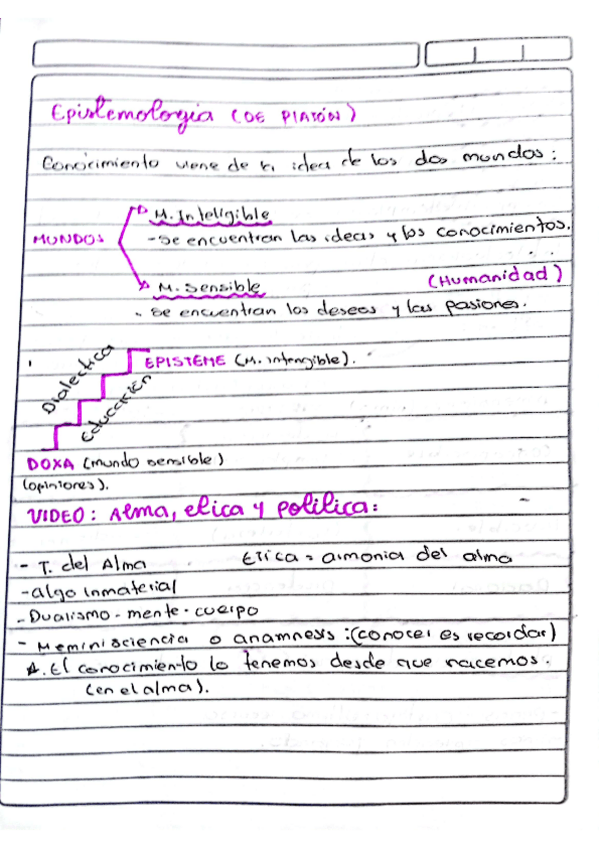 Epistemologia (DE PLATÓN)
Conocimiento viene de la idea de los dos mundos:
MUNDOS
M. Inteligible
- Se encuentran las ideas y los conocimientos.
M. Sensible (Humanidad)
- Se encuentran los deseos y las pasiones.
Dialectica
Educación
EPISTEME (M. intengible).
DOXA (mundo sensible)
(opiniones).
VIDEO: Alma, etica y politica:
- T. del Alma Etica = armonia del alma
- algo Inmaterial
- Dualismo - mente - cuerpo
- Meminisciencia o anamnesis: (conocer es recordar)
A. El conocimiento lo tenemos desde que nacemos.
(en el alma).